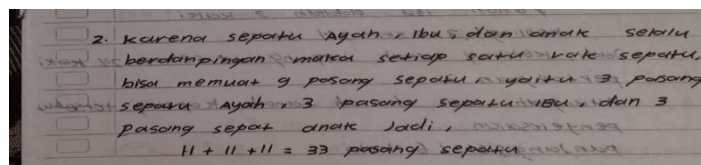 2. Karena sepatu Ayah, Ibu, dan anak selalu
berdanpingan maka setiap satu rak sepatu
bisa memuat 9 pasang sepatu yaitu 3 pasang
sepatu Ayah, 3 pasang sepatu Ibu, dan 3
pasang sepat anak Jadi,
11 + 11 + 11 = 33 pasang sepatu